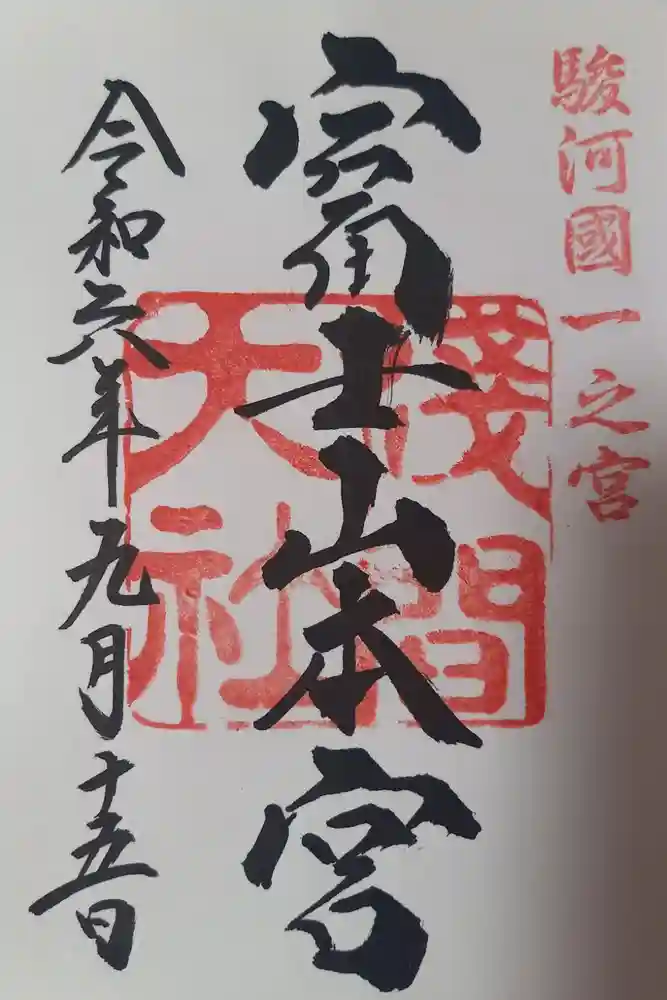 駿河國一之宮
富士山本宮
淺間大社
令和六年九月十五日